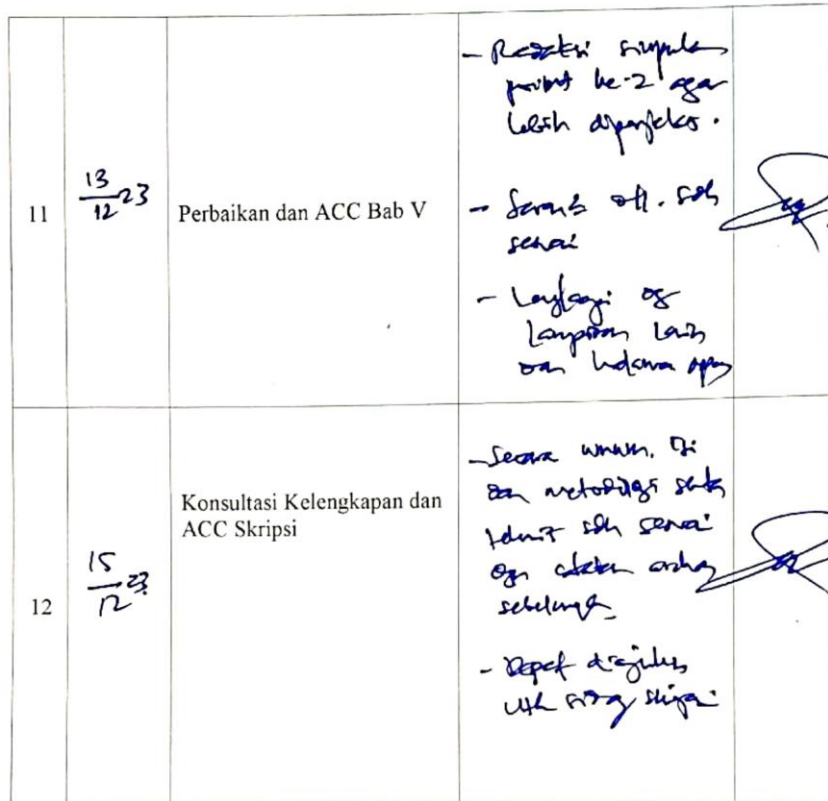 11
13/12 23
Perbaikan dan ACC Bab V
- Redaksi simpulan
point ke-2 agar
lebih diperjelas.
- Saran2 sdh
sesuai
- Lengkapi dg
lampiran lain
dan
12
15/12 23
Konsultasi Kelengkapan dan
ACC Skripsi
- Secara umum, isi
dan metodologi serta
teknis sdh sesuai
dgn catatan arahan
sebelumnya
- Dapat diajukan
utk sidang skripsi